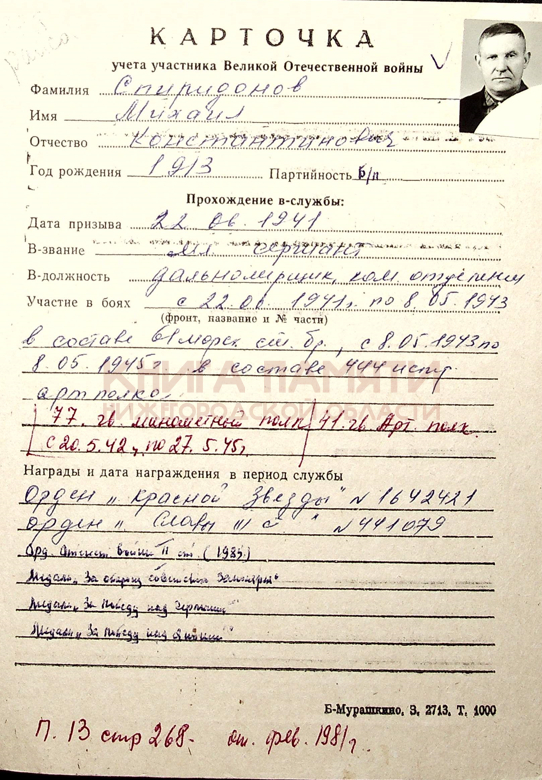 КАРТОЧКА
учета участника Великой Отечественной войны
Фамилия Спиридонов
Имя Михаил
Отчество Константинович
Год рождения 1913 Партийность б/п
Прохождение в-службы:
Дата призыва 22.06.1941
В-звание мл сержант
В-должность дальномерщик, ком. отделения
Участие в боях с 22.06.1941г. по 8.05.1943
(фронт, название и № части)
в составе 61 морск стр. бр., с 8.05.1943 по
8.05.1945г в составе 444 истр.
арт полка.
КНИГА ПАМЯТИ
НИЖЕГОРОДСКОЙ ОБЛАСТИ
77. гв. минометный полк 41. гв. Арт. полк.
с 20.5.42, по 27.5.45г
Награды и дата награждения в период службы
Орден „Красной Звезды" N 1642421
орден „Славы III ст" N 441079
Орд. Отечест войны II ст. (1985)
Медаль „За оборону Советского Заполярья"
Медаль „За Победу над Германией"
Медаль „За победу над Японией"
Б-Мурашкино, З, 2713, Т, 1000
П. 13 стр 268- от. фев. 1981г.